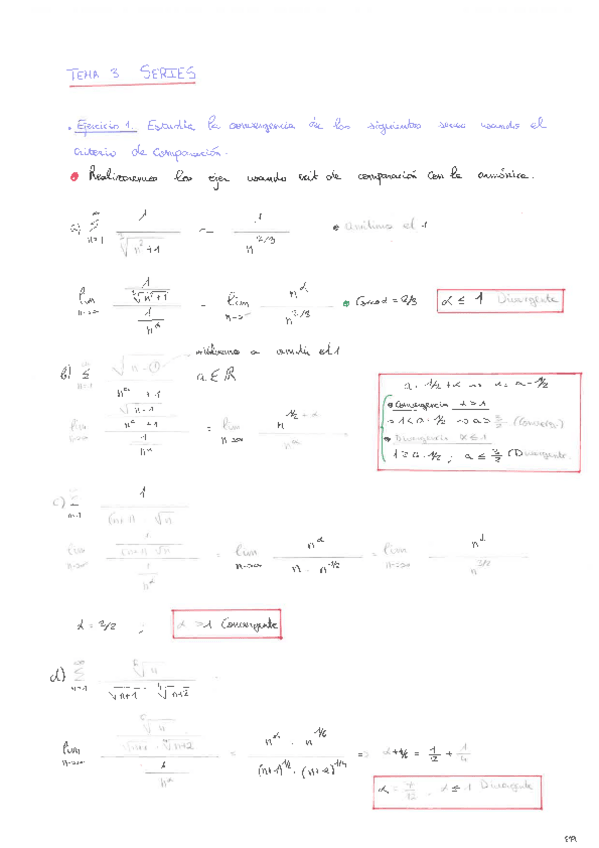 TEMA 3 SERIES
• Ejercicio 1. Estudia la convergencia de las siguientes series usando el
criterio de comparación.
• Realizaremos los ejer usando crit de comparación con la armónica.
a) ∑ n=1 1 / ∛n²+1 ~ 1 / n^2/3 • omitimos el 1
lim n→∞ (1/∛n²+1) / (1/n^α) = lim n→∞ n^α / n^2/3 • Caso α = 2/3 α ≤ 1 Divergente
b) ∑ n=1 √n-1 / n^a +1 a omitir el 1
a ∈ ℝ
lim n→∞ (√n-1 / n^a +1) / (1/n^α) = lim n→∞ n^1/2+α / n^a
a = 1/2 + α α = a - 1/2
• Convergencia α > 1
1 < a - 1/2 → a > 3/2 (Converge)
• Divergencia α ≤ 1
1 ≥ a - 1/2 ; a ≤ 3/2 (Divergente
c) ∑ n=1 1 / (n+1) · √n
lim n→∞ (1/(n+1)·√n) / (1/n^α) = lim n→∞ n^α / n · n^1/2 = lim n→∞ n^α / n^3/2
α = 3/2 ; α > 1 Convergente
d) ∑ n=1 ∞ √n / √n+1 · ∜n+2
lim n→∞ (√n / √n+1 · ∜n+2) / (1/n^α) = n^α · n^1/6 / (n+1)^1/2 · (n+2)^1/4 ⇒ α + 1/6 = 1/2 + 1/4
α = 7/12 , α ≤ 1 Divergente